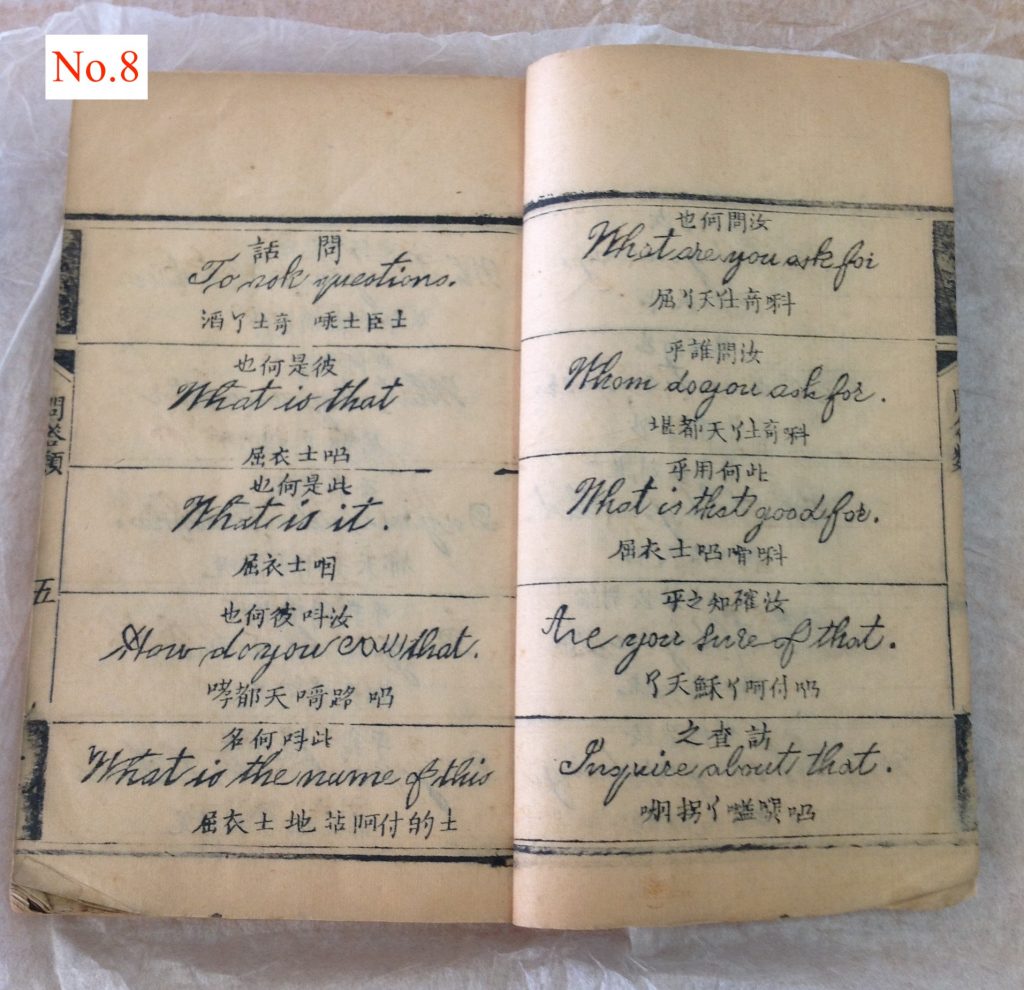 No.8
問話
To ask questions.
丫士奇 士臣士
彼是何也
What is that
屈衣士吗
此是何也
What is it.
屈衣士咽
汝呌彼何也
How do you call that.
哮都天㗎路吗
此呌何名
What is the name of this
屈衣士地站阿付的士
問答類
五
汝問何也
What are you ask for
屈丫天丫士奇㖿
汝問誰乎
Whom do you ask for.
堪都天丫士奇㖿
此何用乎
What is that good for.
屈衣士吗㖿
汝確知之乎
Are you sure of that.
丫天穌丫阿付吗
訪查之
Inquire about that.
拐丫吗